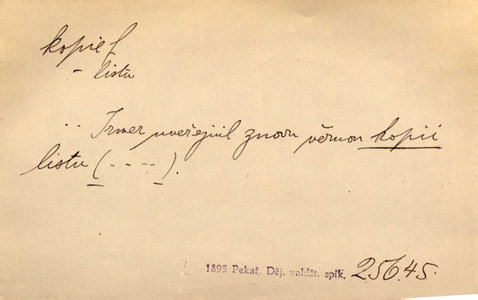 kopie f
– listu
·· Irmer uveřejnil znovu věrnou kopii
listu (----).
1895 Pekař. Děj. valdšt. spik. 256.45.